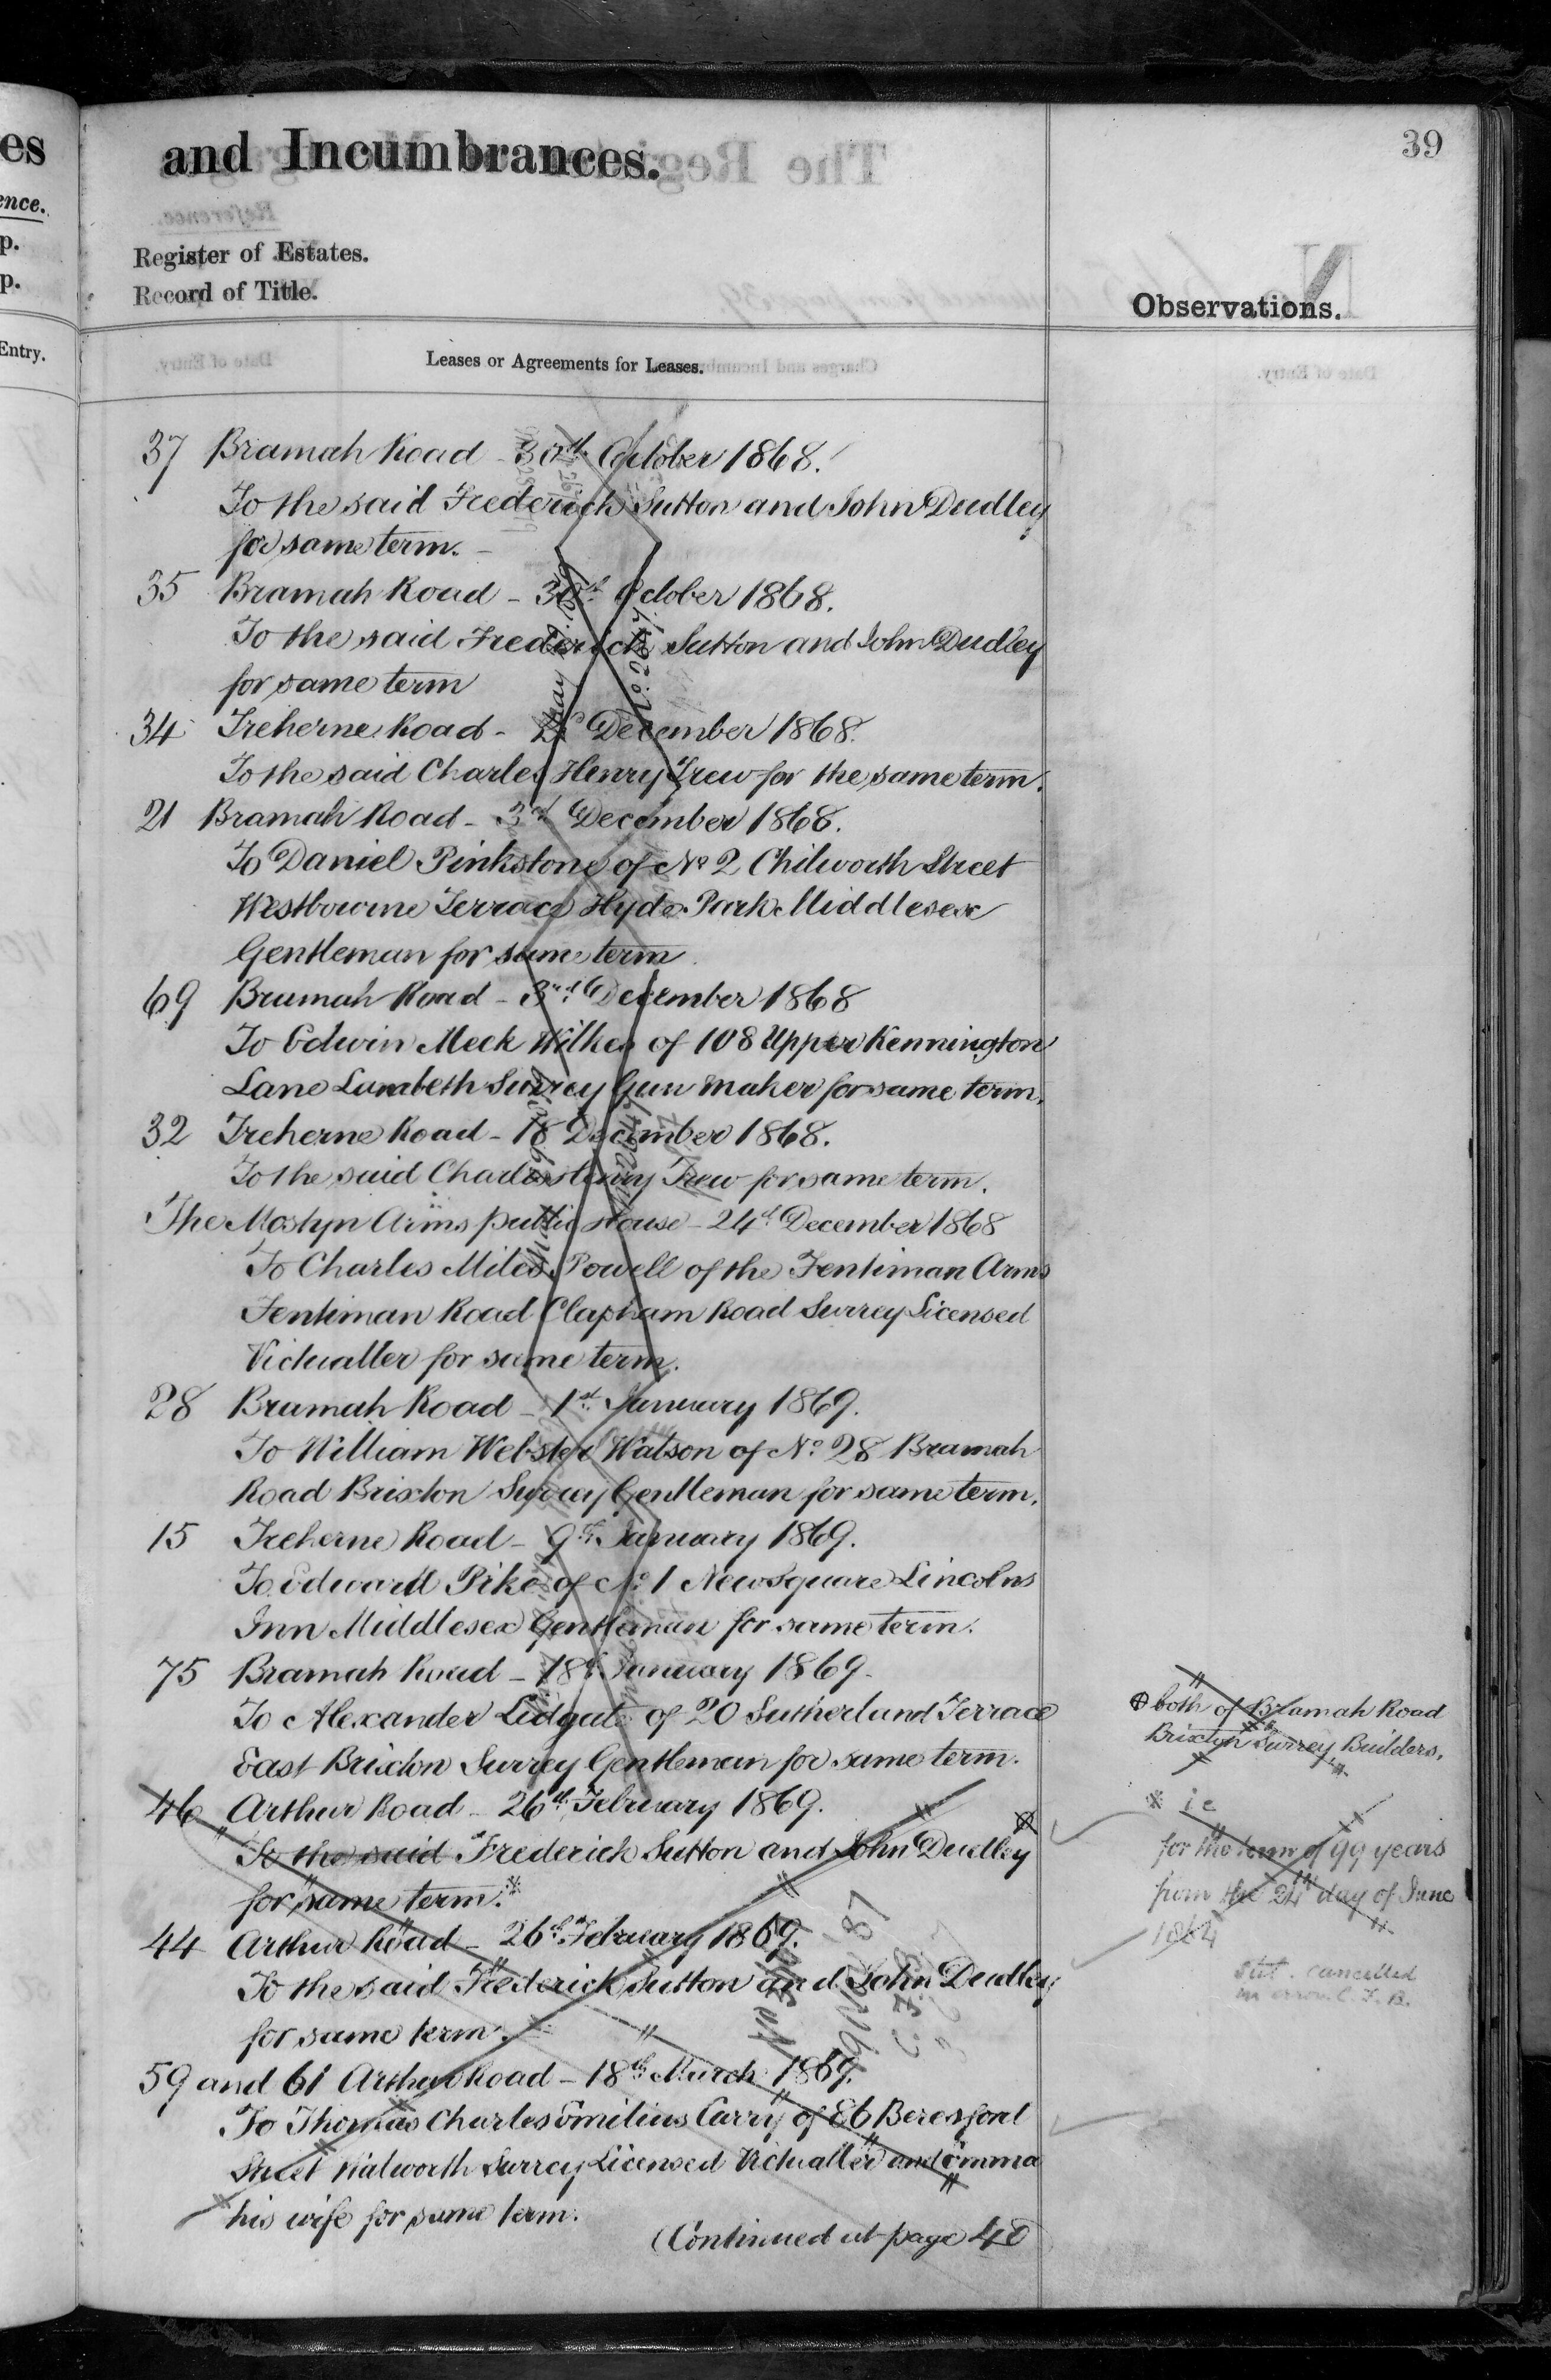 39
and Incumbrances.
Register of Estates.
Record of Title.
Observations.
Leases or Agreements for Leases.
37 Bramah Road - 30th October 1868.
To the said Frederick Sutton and John Dudley
for same term.
35 Bramah Road - 30th October 1868.
To the said Frederick Sutton and John Dudley
for same term
34 Treherne Road - December 1868.
To the said Charles Henry Trew for the same term.
21 Bramah Road - 3rd December 1868.
To Daniel Pinkstone of No 2 Chilworth Street
Westbourne Terrace Hyde Park Middlesex
Gentleman for same term.
69 Bramah Road - 3rd December 1868
To Edwin Meek Wilkes of 108 Upper Kennington
Lane Lambeth Surrey Gun Maker for same term.
32 Treherne Road - 18 December 1868.
To the said Charles Henry Trew for same term.
The Mostyn Arms public House - 24th December 1868
To Charles Miles Powell of the Fentiman Arms
Fentiman Road Clapham Road Surrey Licensed
Victualler for same term.
28 Bramah Road - 1st January 1869.
To William Webster Watson of No 28 Bramah
Road Brixton Surrey Gentleman for same term.
15 Treherne Road - 9th January 1869.
To Edward Pike of No 1 New Square Lincolns
Inn Middlesex Gentleman for same term.
75 Bramah Road - 18th January 1869.
To Alexander Lidgate of 20 Sutherland Terrace
East Brixton Surrey Gentleman for same term.
46 Arthur Road - 26th February 1869.
To the said Frederick Sutton and John Dudley ⊕
for same term.*
44 Arthur Road - 26th February 1869.
To the said Frederick Sutton and John Dudley
for same term.
59 and 61 Arthur Road - 18th March 1869.
To Thomas Charles Emilius Curry of 86 Beresford
Street Walworth Surrey Licensed Victualler and Emma
his wife for same term.
(Continued at page 40)
⊕ both of Bramah Road
Brixton Surrey, Builders.
* ie
for the term of 99 years
from the 24 day of June
1864
cancelled
in error C. F. B.